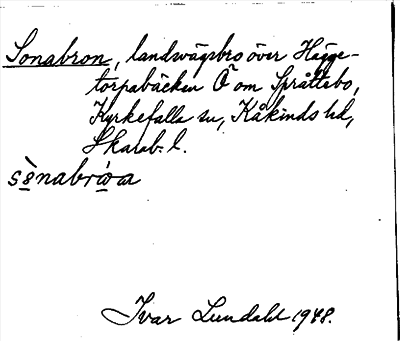 Sonabron, landsvägsbro över Hägge-
torpabäcken Ö om Språttebo,
Kyrkefalla sn, Kåkinds hd,
Skarab. l.
Ivar Lundahl 1948.